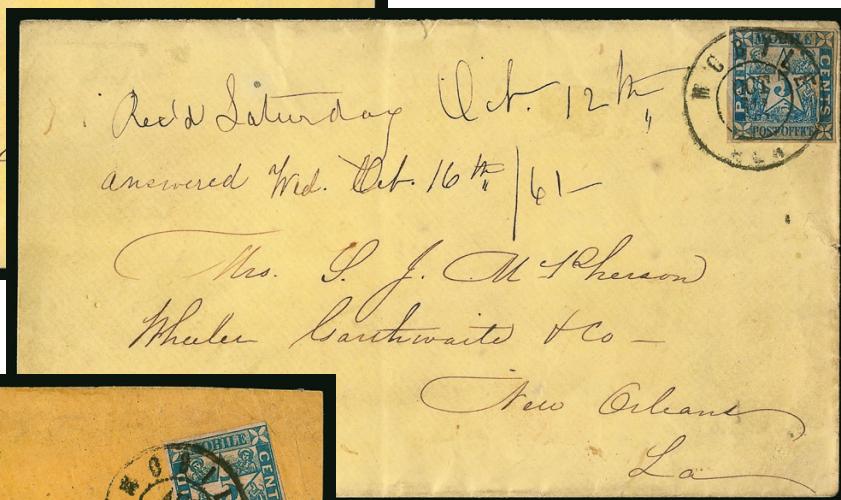 MOBILE
PAID 5 CENTS
POST OFFICE
MOBILE
OCT
ALA
Rec'd Saturday Oct. 12th "
answered Wed. Oct. 16th "/61 —
Mrs. S. J. McPherson
Wheeler Garthwaite & Co —
New Orleans
La
MOBILE
CENTS